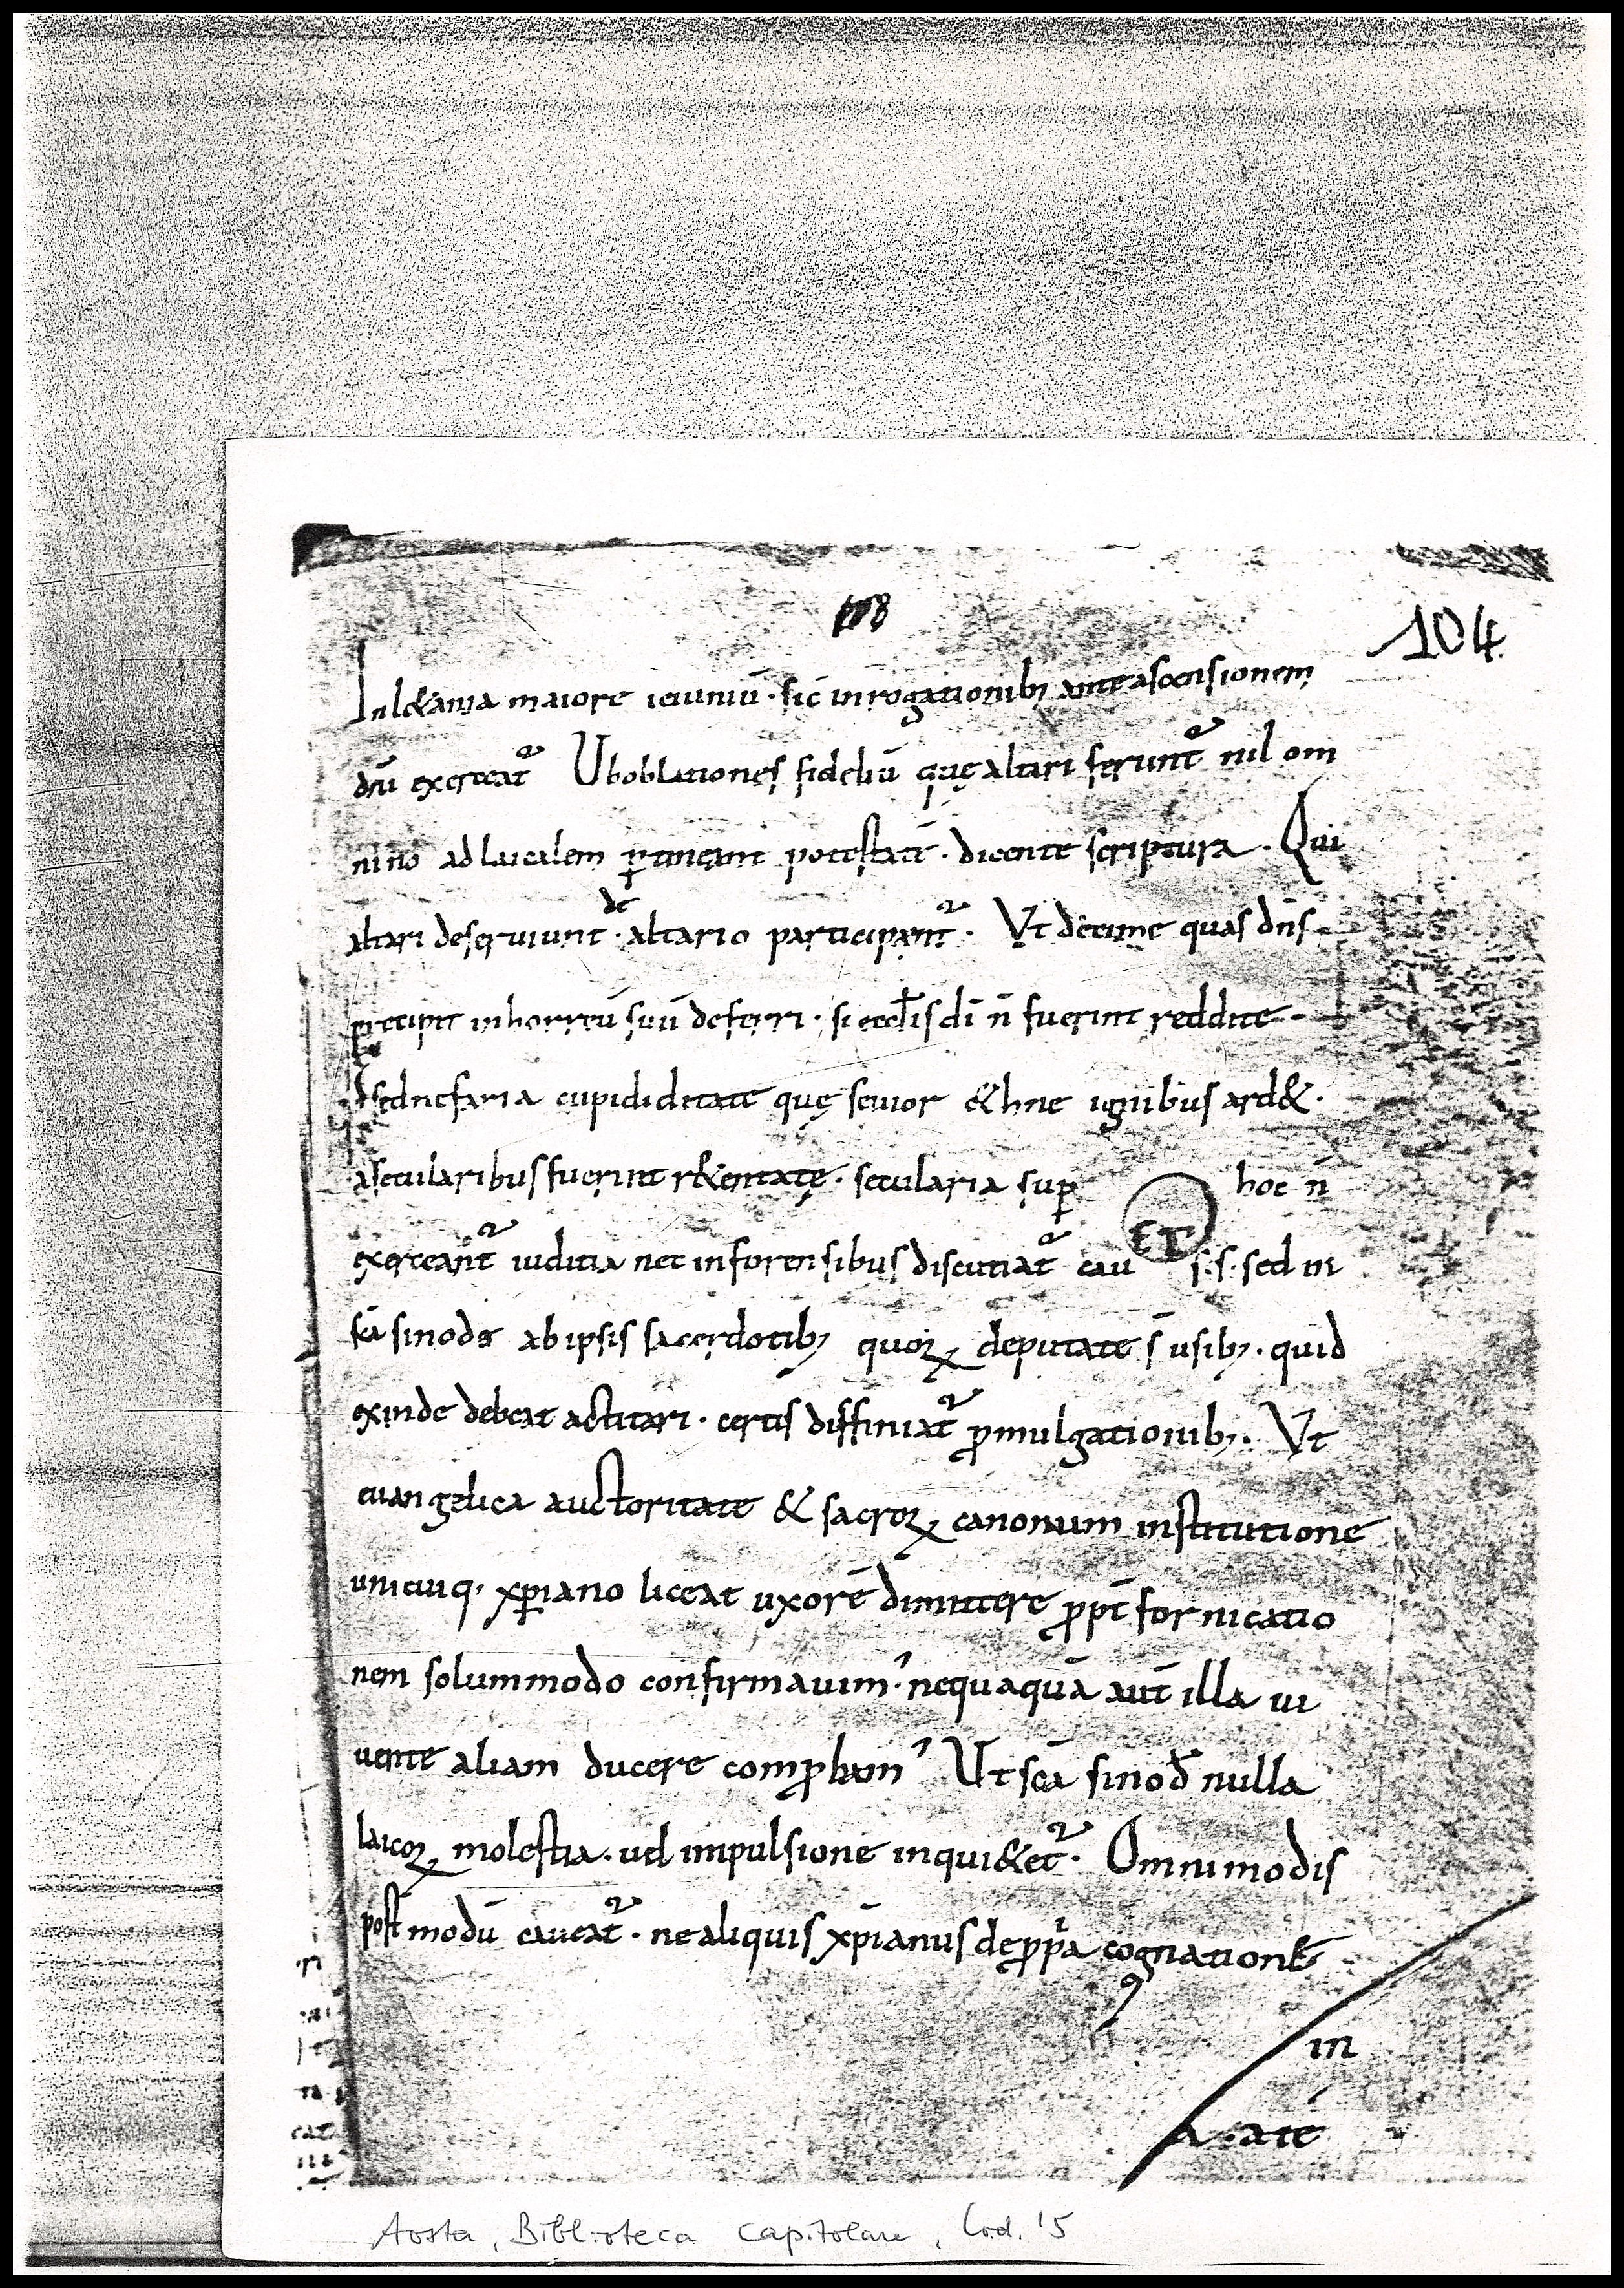 104
In l&ania maiore ieiuniū · sic̄ in rogationib; ante ascensionem
dn̄i exerceat᷑ Ut oblationes fideliū quę altari ferunt᷑ nil om
nino ad laicalem ꝑtineant potestatē · dicente scriptura · Qui
altari deserviunt · de altario participant᷑ · Vt decime quas dn̄s
precipit in horreū suū deferri · si eccl̄is dī n̄ fuerint reddite
sed nefaria cupididitate quę sevior &hne ignibus ard& ·
a secularibus fuerint r&entatę · secularia suꝑ hoc n̄
exerceant᷑ iuditia nec in forensibus discutiat᷑ cau s · s · sed in
sc̄a sinodo ab ipsis sacerdotib; quoꝝ deputate s̄ usib; · quid
exinde debeat actitari · certis diffiniat᷑ ꝓmulgationib; · Vt
euangelica auctoritate & sacroꝝ canonum institutione
unicuiq; xp̄iano liceat uxorē dimittere ꝓpt̄ fornicatio
nem solummodo confirmauim᾽ · nequaquā aut̄ illa ui
uente aliam ducere comꝓbam᾽ Ut sc̄a sinod̄ nulla
laicoꝝ molestia · uel impulsione inqui&et᷑ · Omnimodis
post modū caueat᷑ · ne aliquis xp̄ianus de ꝓpͥa cognatione
ET
in
Aosta, Biblioteca Capitolare, Cod. 15